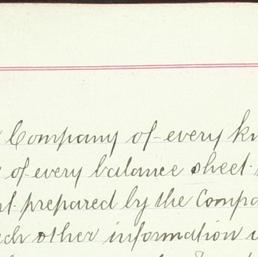 Company of every
of every balance sheet
prepared by the Compa
other information